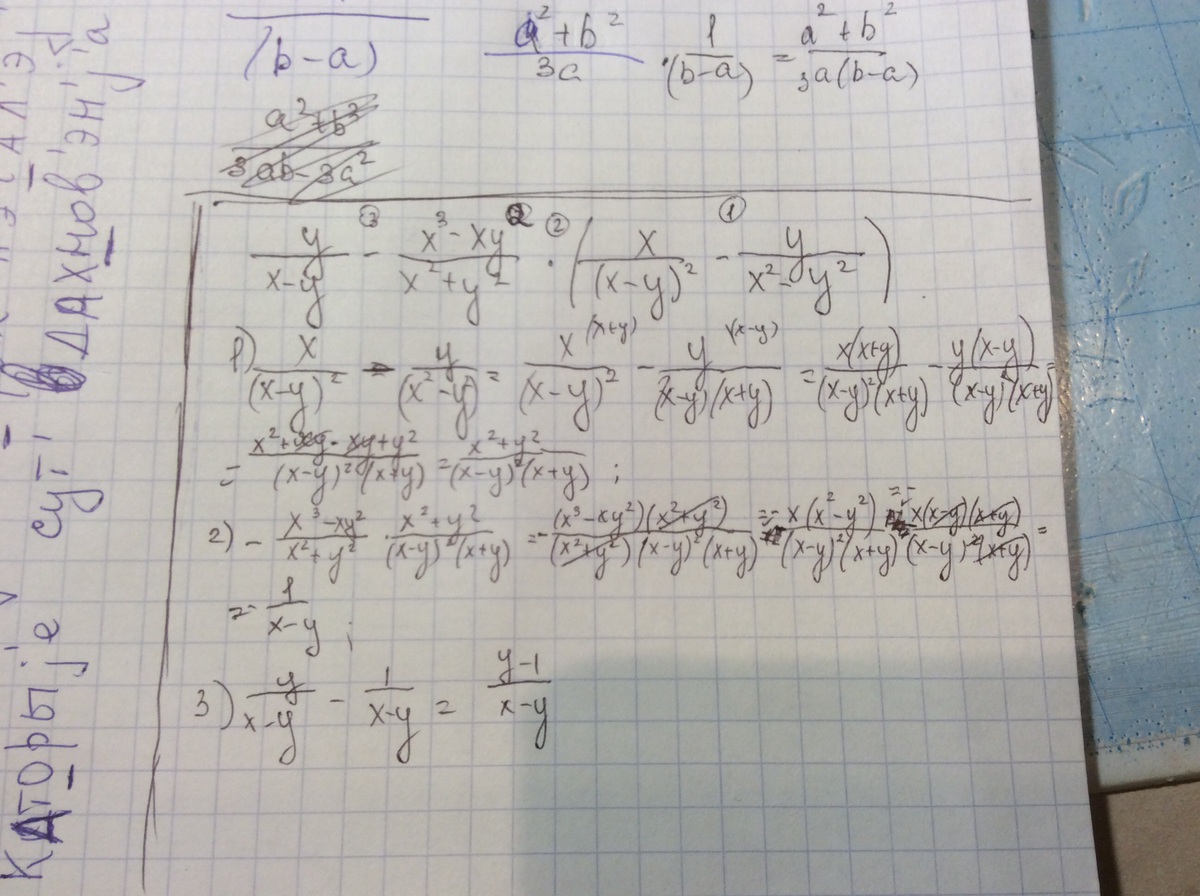 (b-a)
(a²+b²)/(3a) · 1/(b-a) = (a²+b²)/(3a(b-a))
(a²+b³)/(3ab-3a²)
③ ② ② ①
y/(x-y) - (x³-xy²)/(x²+y²) · (x/(x-y)² - y/(x²-y²))
1) x/(x-y)² - y/(x²-y²) = x(x+y)/(x-y)² - y(x-y)/((x-y)(x+y)) = x(x+y)/((x-y)²(x+y)) - y(x-y)/((x-y)(x+y)) =
= (x²+xy-xy+y²)/((x-y)²(x+y)) = (x²+y²)/((x-y)²(x+y)) ;
2) - (x³-xy²)/(x²+y²) · (x²+y²)/((x-y)²(x+y)) = - ((x³-xy²)(x²+y²))/((x²+y²)(x-y)²(x+y)) = - x(x²-y²)/((x-y)²(x+y)) = - x(x-y)(x+y)/((x-y)²(x+y)) =
= - 1/(x-y) ;
3) y/(x-y) - 1/(x-y) = (y-1)/(x-y)
КАТОРЫjе сут'